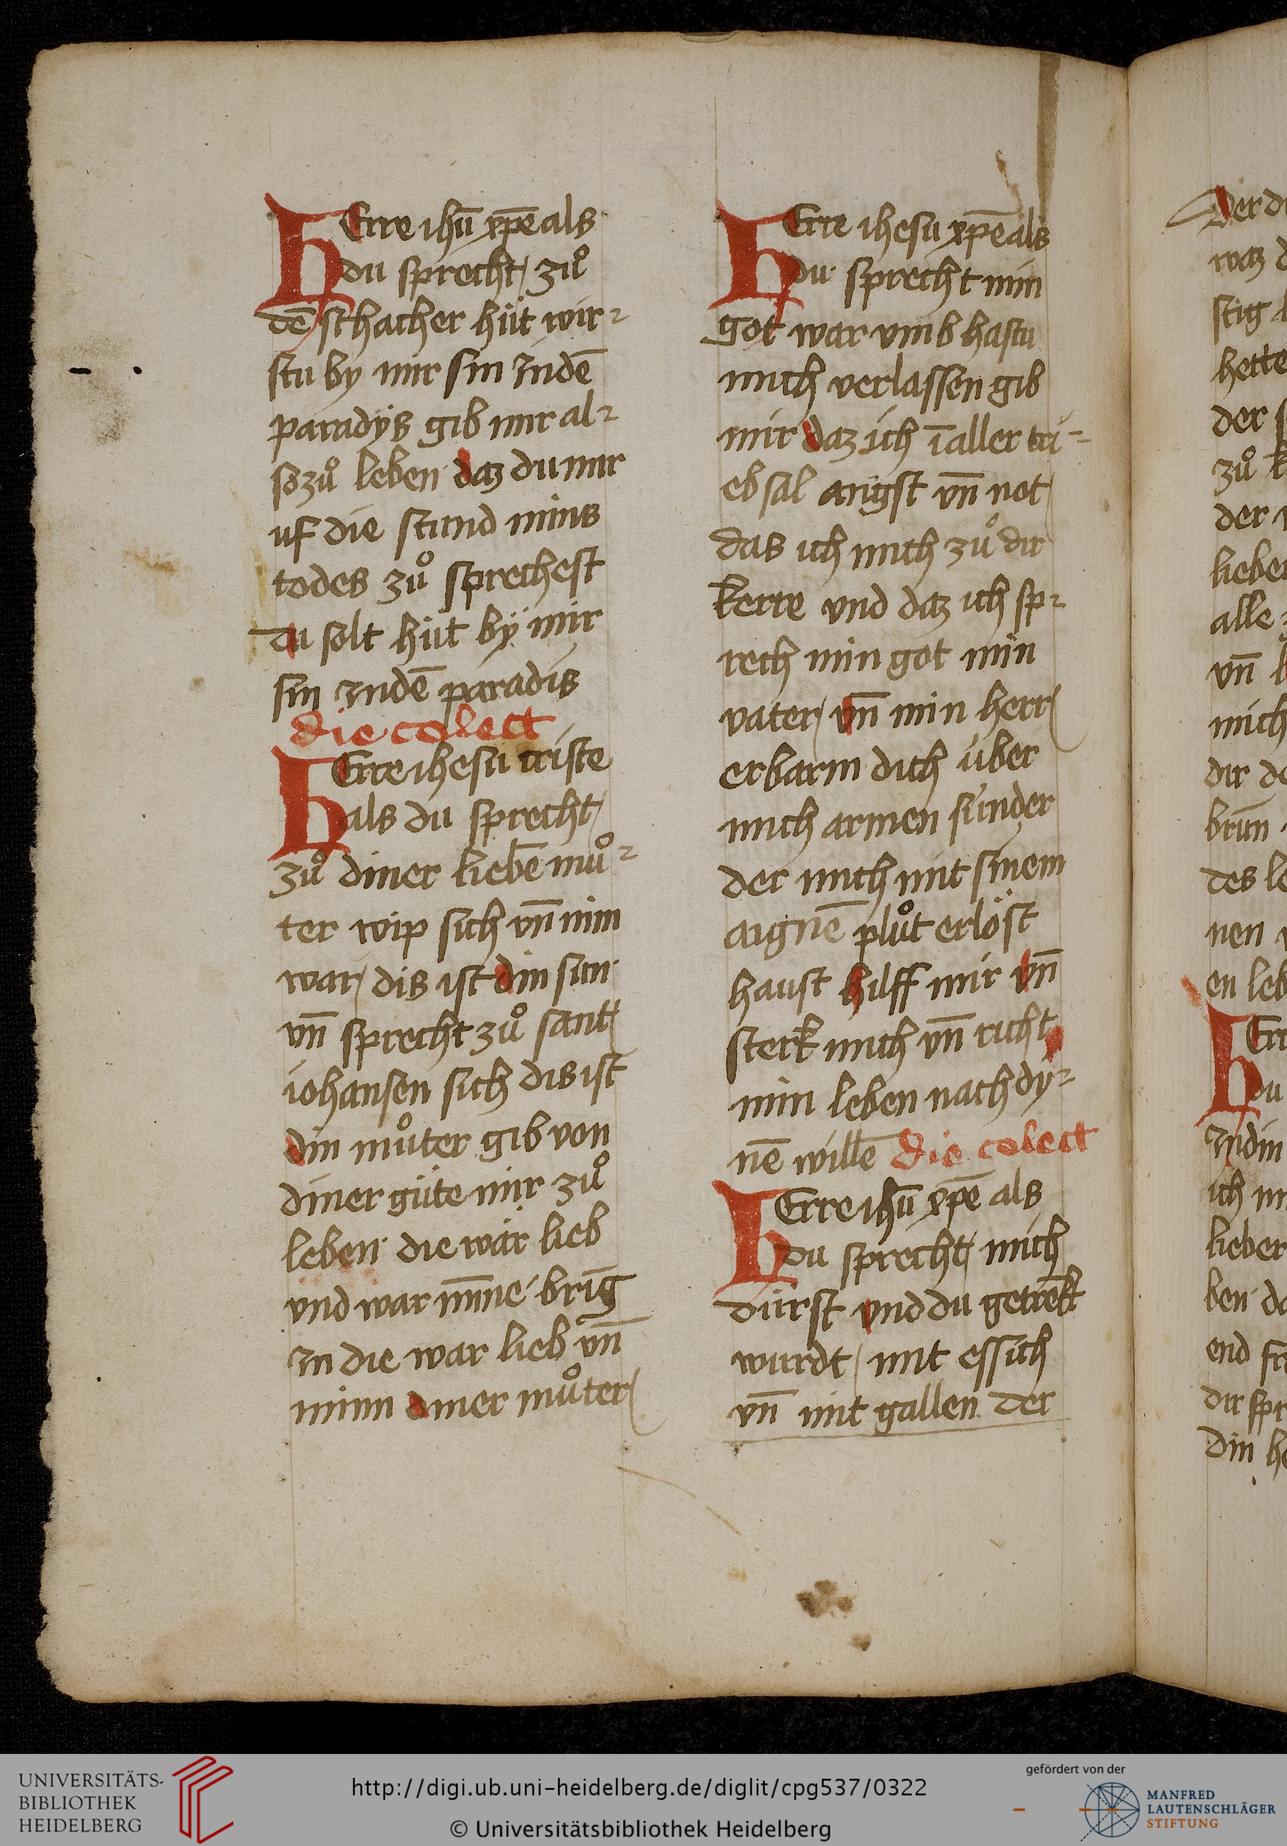 HErre ihu̅ xp̅e als
du sprecht / zuͦ
de̅ schacher hüt wir⸗
stu by mir sin Inde̅
paradÿs gib mir al⸗
so zuͦ leben daz du mir
uf die stund mins
todes zuͦ sprechest
du solt hüt bÿ mir
sin Inde̅ paradis
die colect
HErre ihesu criste
als du sprecht /
zuͦ diner liebe̅ muͦ⸗
ter wip sich vn̅ nim
war / dis ist din sun
vn̅ sprecht zuͦ sant
iohansen sich dis ist
din muͦter gib von
diner güte mir zuͦ
leben die wär lieb
vnd war minne bring
In die war lieb vn̅
minn diner muͦter /
HErre ihesu xp̅e als
du sprecht min
got war vmb hastu
mich verlassen gib
mir daz ich i̅ aller trü⸗
ebsal angst vn̅ not
das ich mich zuͦ dir
kerre vnd daz ich sp⸗
rech min got min
vater / vn̅ min herr /
erbarm dich über
mich armen sünder
der mich mit sinem
aigne̅ pluͦt erlöst
haust hilff mir vn̅
sterk mich vn̅ richt
min leben nach dy⸗
ne̅ wille̅ die colect
HErre ihu̅ xp̅e als
du sprecht / mich
dürst vnd du getre̅kt
wurdt / mit essich
vn̅ mit gallen der
UNIVERSITÄTS-
BIBLIOTHEK
HEIDELBERG
http://digi.ub.uni-heidelberg.de/diglit/cpg537/0322
© Universitätsbibliothek Heidelberg
gefördert von der
MANFRED
LAUTENSCHLÄGER
STIFTUNG